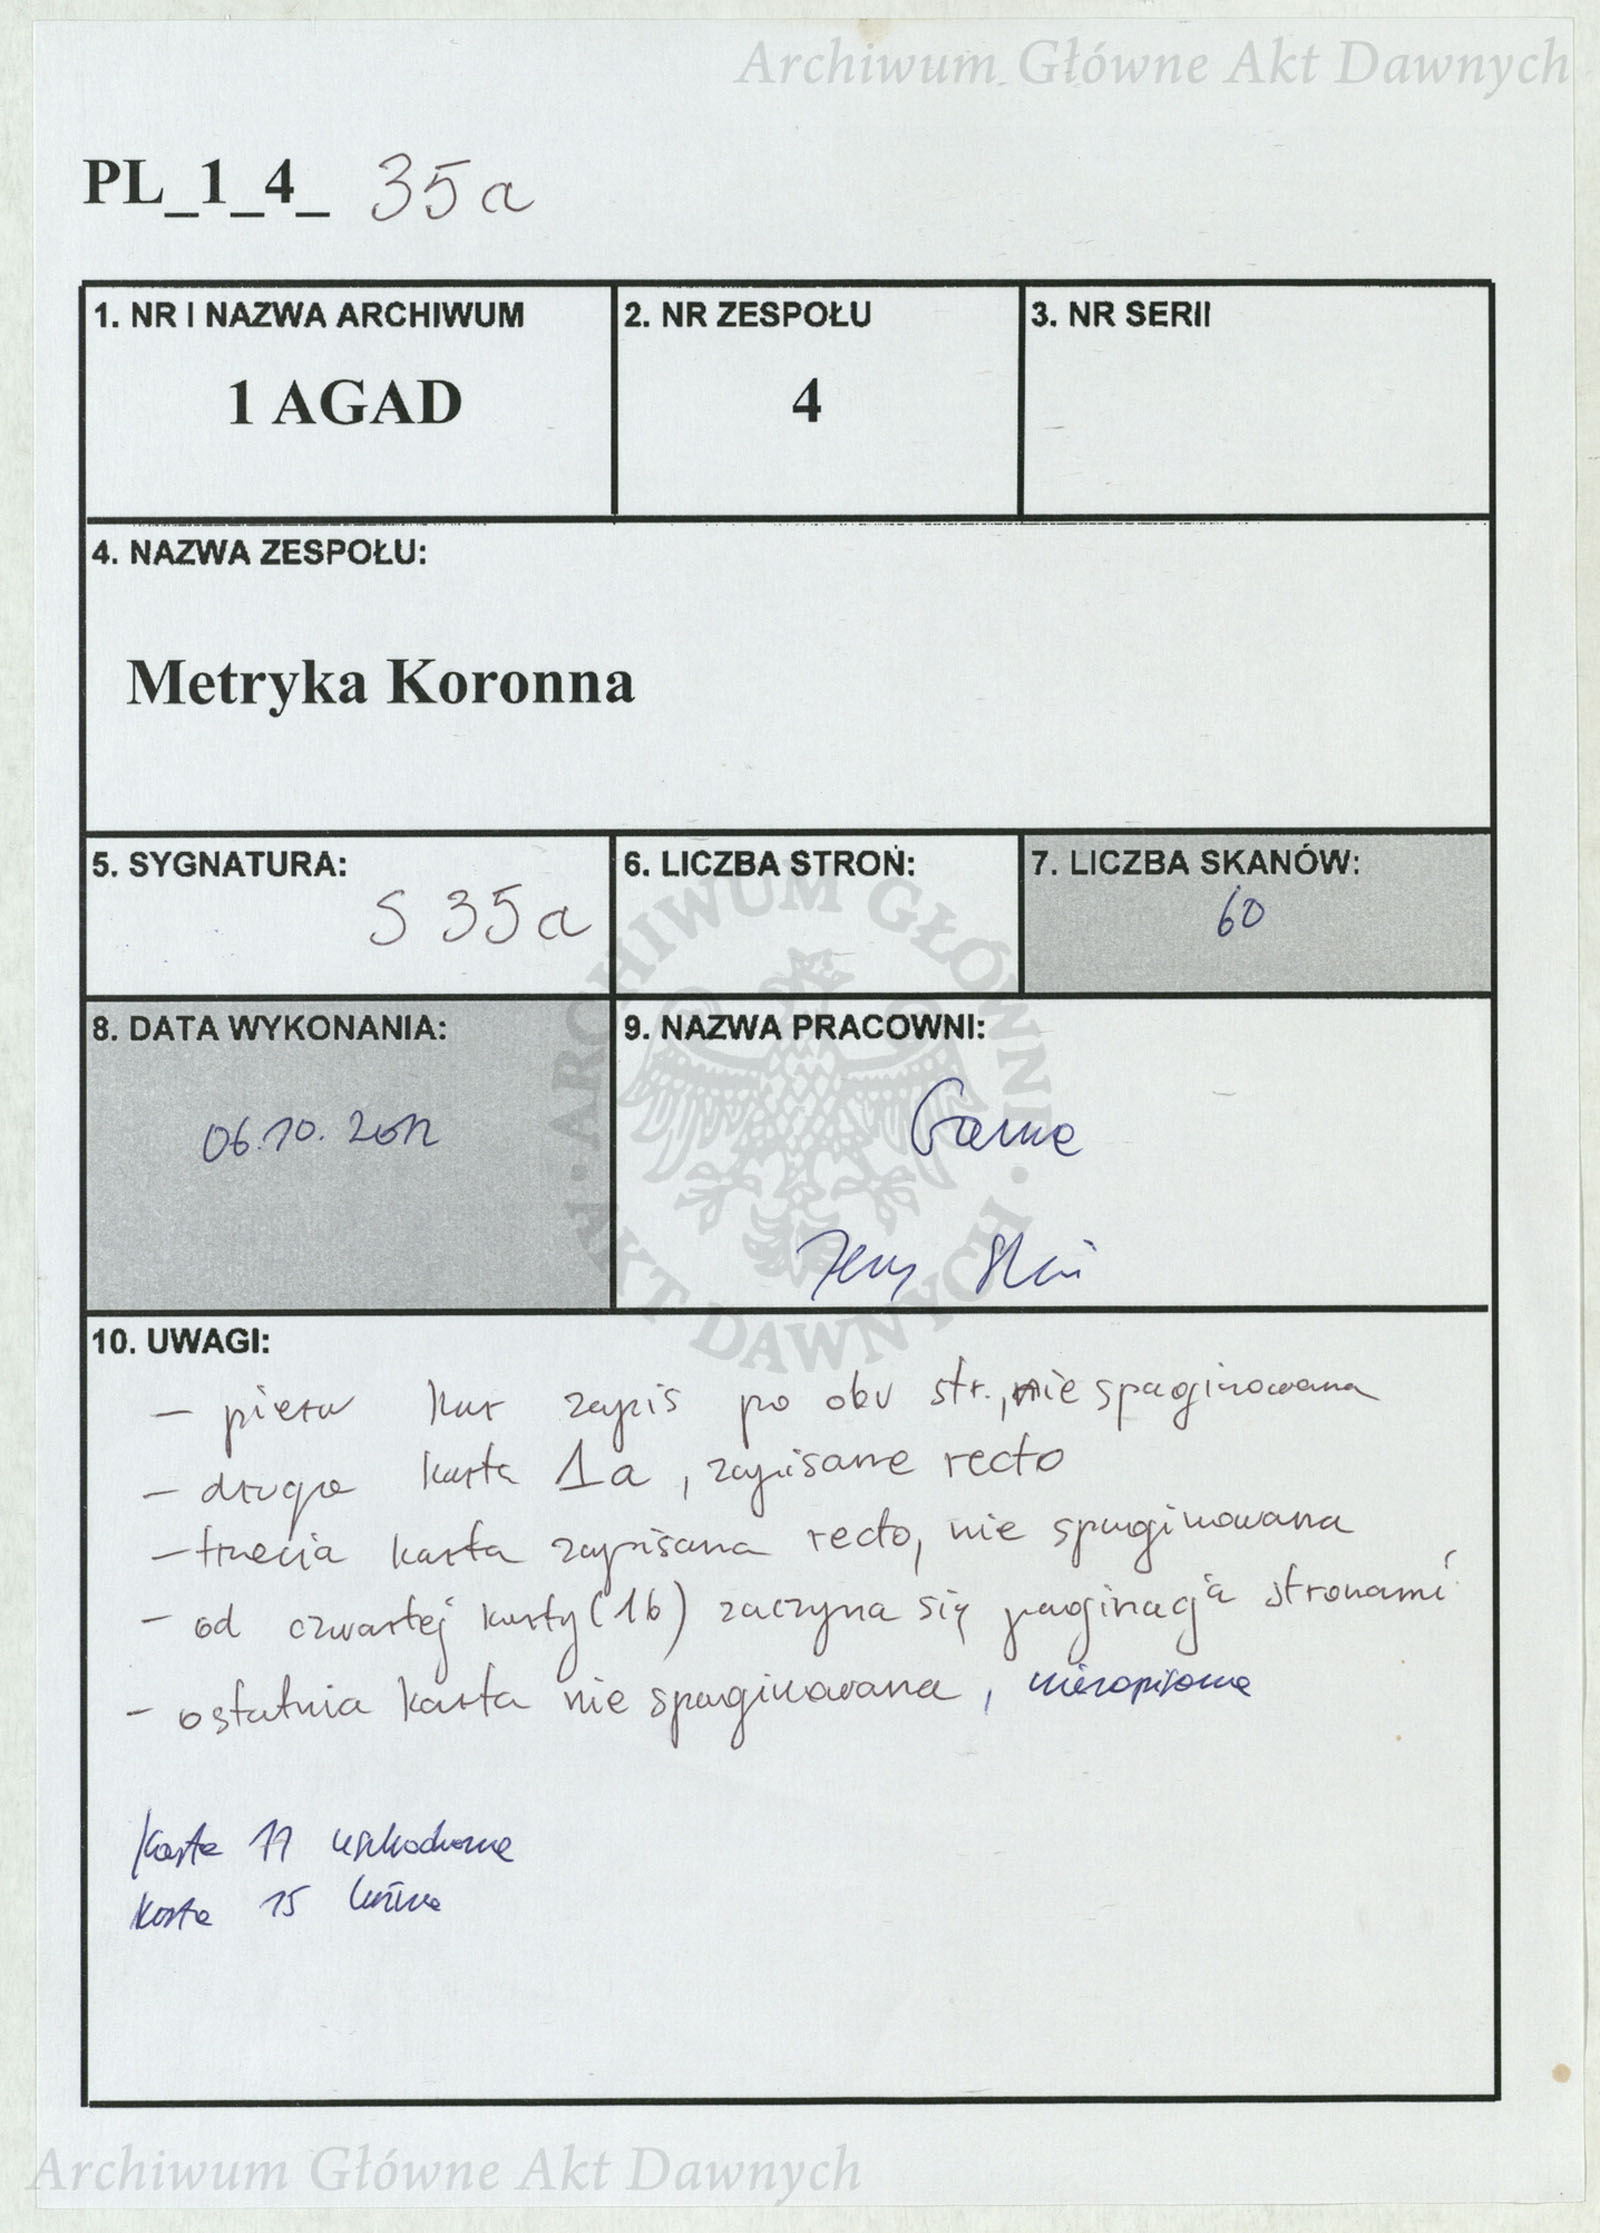 Archiwum Główne Akt Dawnych
PL_1_4_ 35a
1. NR I NAZWA ARCHIWUM
1 AGAD
2. NR ZESPOŁU
4
3. NR SERII
4. NAZWA ZESPOŁU:
Metryka Koronna
5. SYGNATURA:
S 35a
6. LICZBA STRON:
7. LICZBA SKANÓW:
60
8. DATA WYKONANIA:
06.10.2012
9. NAZWA PRACOWNI:
ARCHIWUM GŁÓWNE AKT DAWNYCH
10. UWAGI:
- pierw kar zapis po obu str., nie spaginowana
- druga karta 1a, zapisane recto
- trzecia karta zapisana recto, nie spaginowana
- od czwartej karty (1b) zaczyna się paginacja stronami
- ostatnia karta nie spaginowana, niezapisana
karta 11 uszkodzona
karta 15 luźna
Archiwum Główne Akt Dawnych